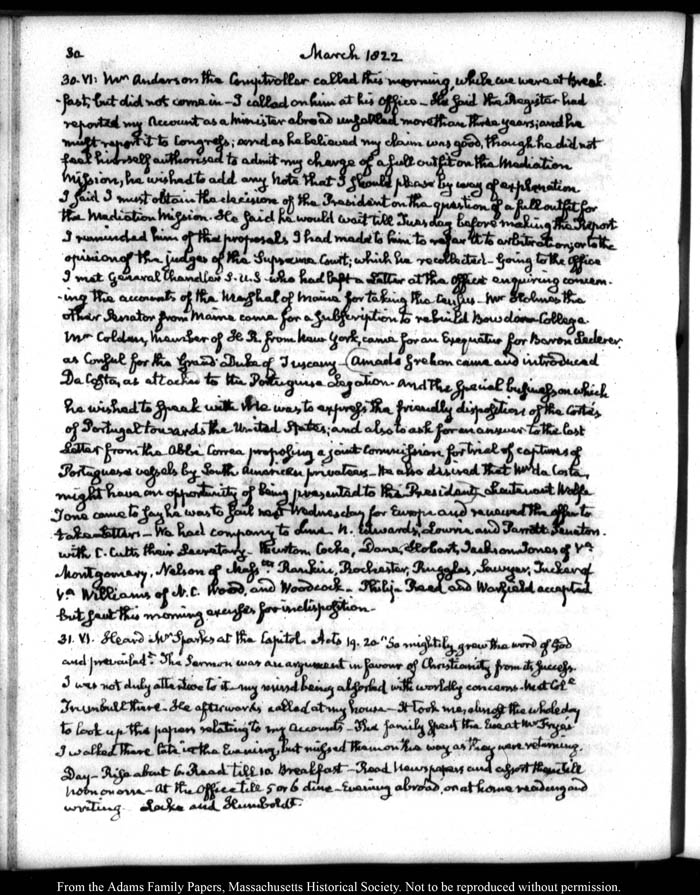 82
March 1822
30. VI: Mr. Anderson the Comptroller called this morning, while we were at break-
-fast, but did not come in - I called on him at his Office - He said the Register had
reported my Account as a Minister abroad unsettled more than three years; and he
must report it to Congress; and as he believed my claim was good, though he did not
feel himself authorised to admit my charge of a full outfit on the Mediation
Mission, he wished to add any Note that I should please by way of explanation
I said I must obtain the decision of the President on the question of a full outfit for
the Mediation Mission. He said he would wait till Tuesday before making the Report
I reminded him of the proposals I had made to him to refer it to arbitration; or to the
opinion of the judges of the Supreme Court; which he recollected - Going to the Office
I met General Chandler S. U.S. who had left a Letter at the Office enquiring concern-
-ing the accounts of the Marshal of Maine for taking the Census. Mr Holmes the
other Senator from Maine came for a subscription to rebuild Bowdoin College.
Mr Colden, Member of H. R. from New York, came for an Exequatur for Baron Lederer
as Consul for the Grand Duke of Tuscany - Amado Grehon came and introduced
Da Costa, as attaché to the Portuguese Legation. And the special business on which
he wished to speak with me was to express the friendly disposition of the Cortes
of Portugal towards the United States; and also to ask for an answer to the last
Letter from the Abbé Correa proposing a joint Commission for trial of captures of
Portuguese vessels by South American privateers - He also desired that Mr. da Costa,
might have an opportunity of being presented to the President. Lieutenant Wolfe
Tone came to say he was to sail next Wednesday for Europe and renewed the offer to
take Letters - We had company to dine N. Edwards, Lowrie and Parrott Senators.
with C. Cutts their Secretary. Burton, Cocke, Dane, Hobart, Jackson, Jones of Va
Montgomery. Nelson of Masstts Rankin, Rochester, Ruggles, Sawyer, Tucker of
Va Williams of N.C. Wood, and Woodcock - Philip Reed and Warfield accepted
but sent this morning excuses for indisposition -
31. VI. Heard Mr Sparks at the Capitol. Acts 19. 20 "So mightily grew the word of God
and prevailed". The Sermon was an argument in favour of Christianity from its success.
I was not duly attentive to it - my mind being absorbed with worldly concerns. Met Cole
Trumbull there. He afterwards called at my house - It took me, almost the whole day
to look up the papers relating to my Accounts - The family spent the Eve at Mr Frye's
I walked there late in the Evening, but missed them on the way as they were returning.
Day - Rise about 6. Read till 10 Breakfast - Read Newspapers and assort them till
noon or one - At the Office till 5 or 6 dine - Evening abroad, or at home reading and
writing. Locke and Humboldt.
From the Adams Family Papers, Massachusetts Historical Society. Not to be reproduced without permission.